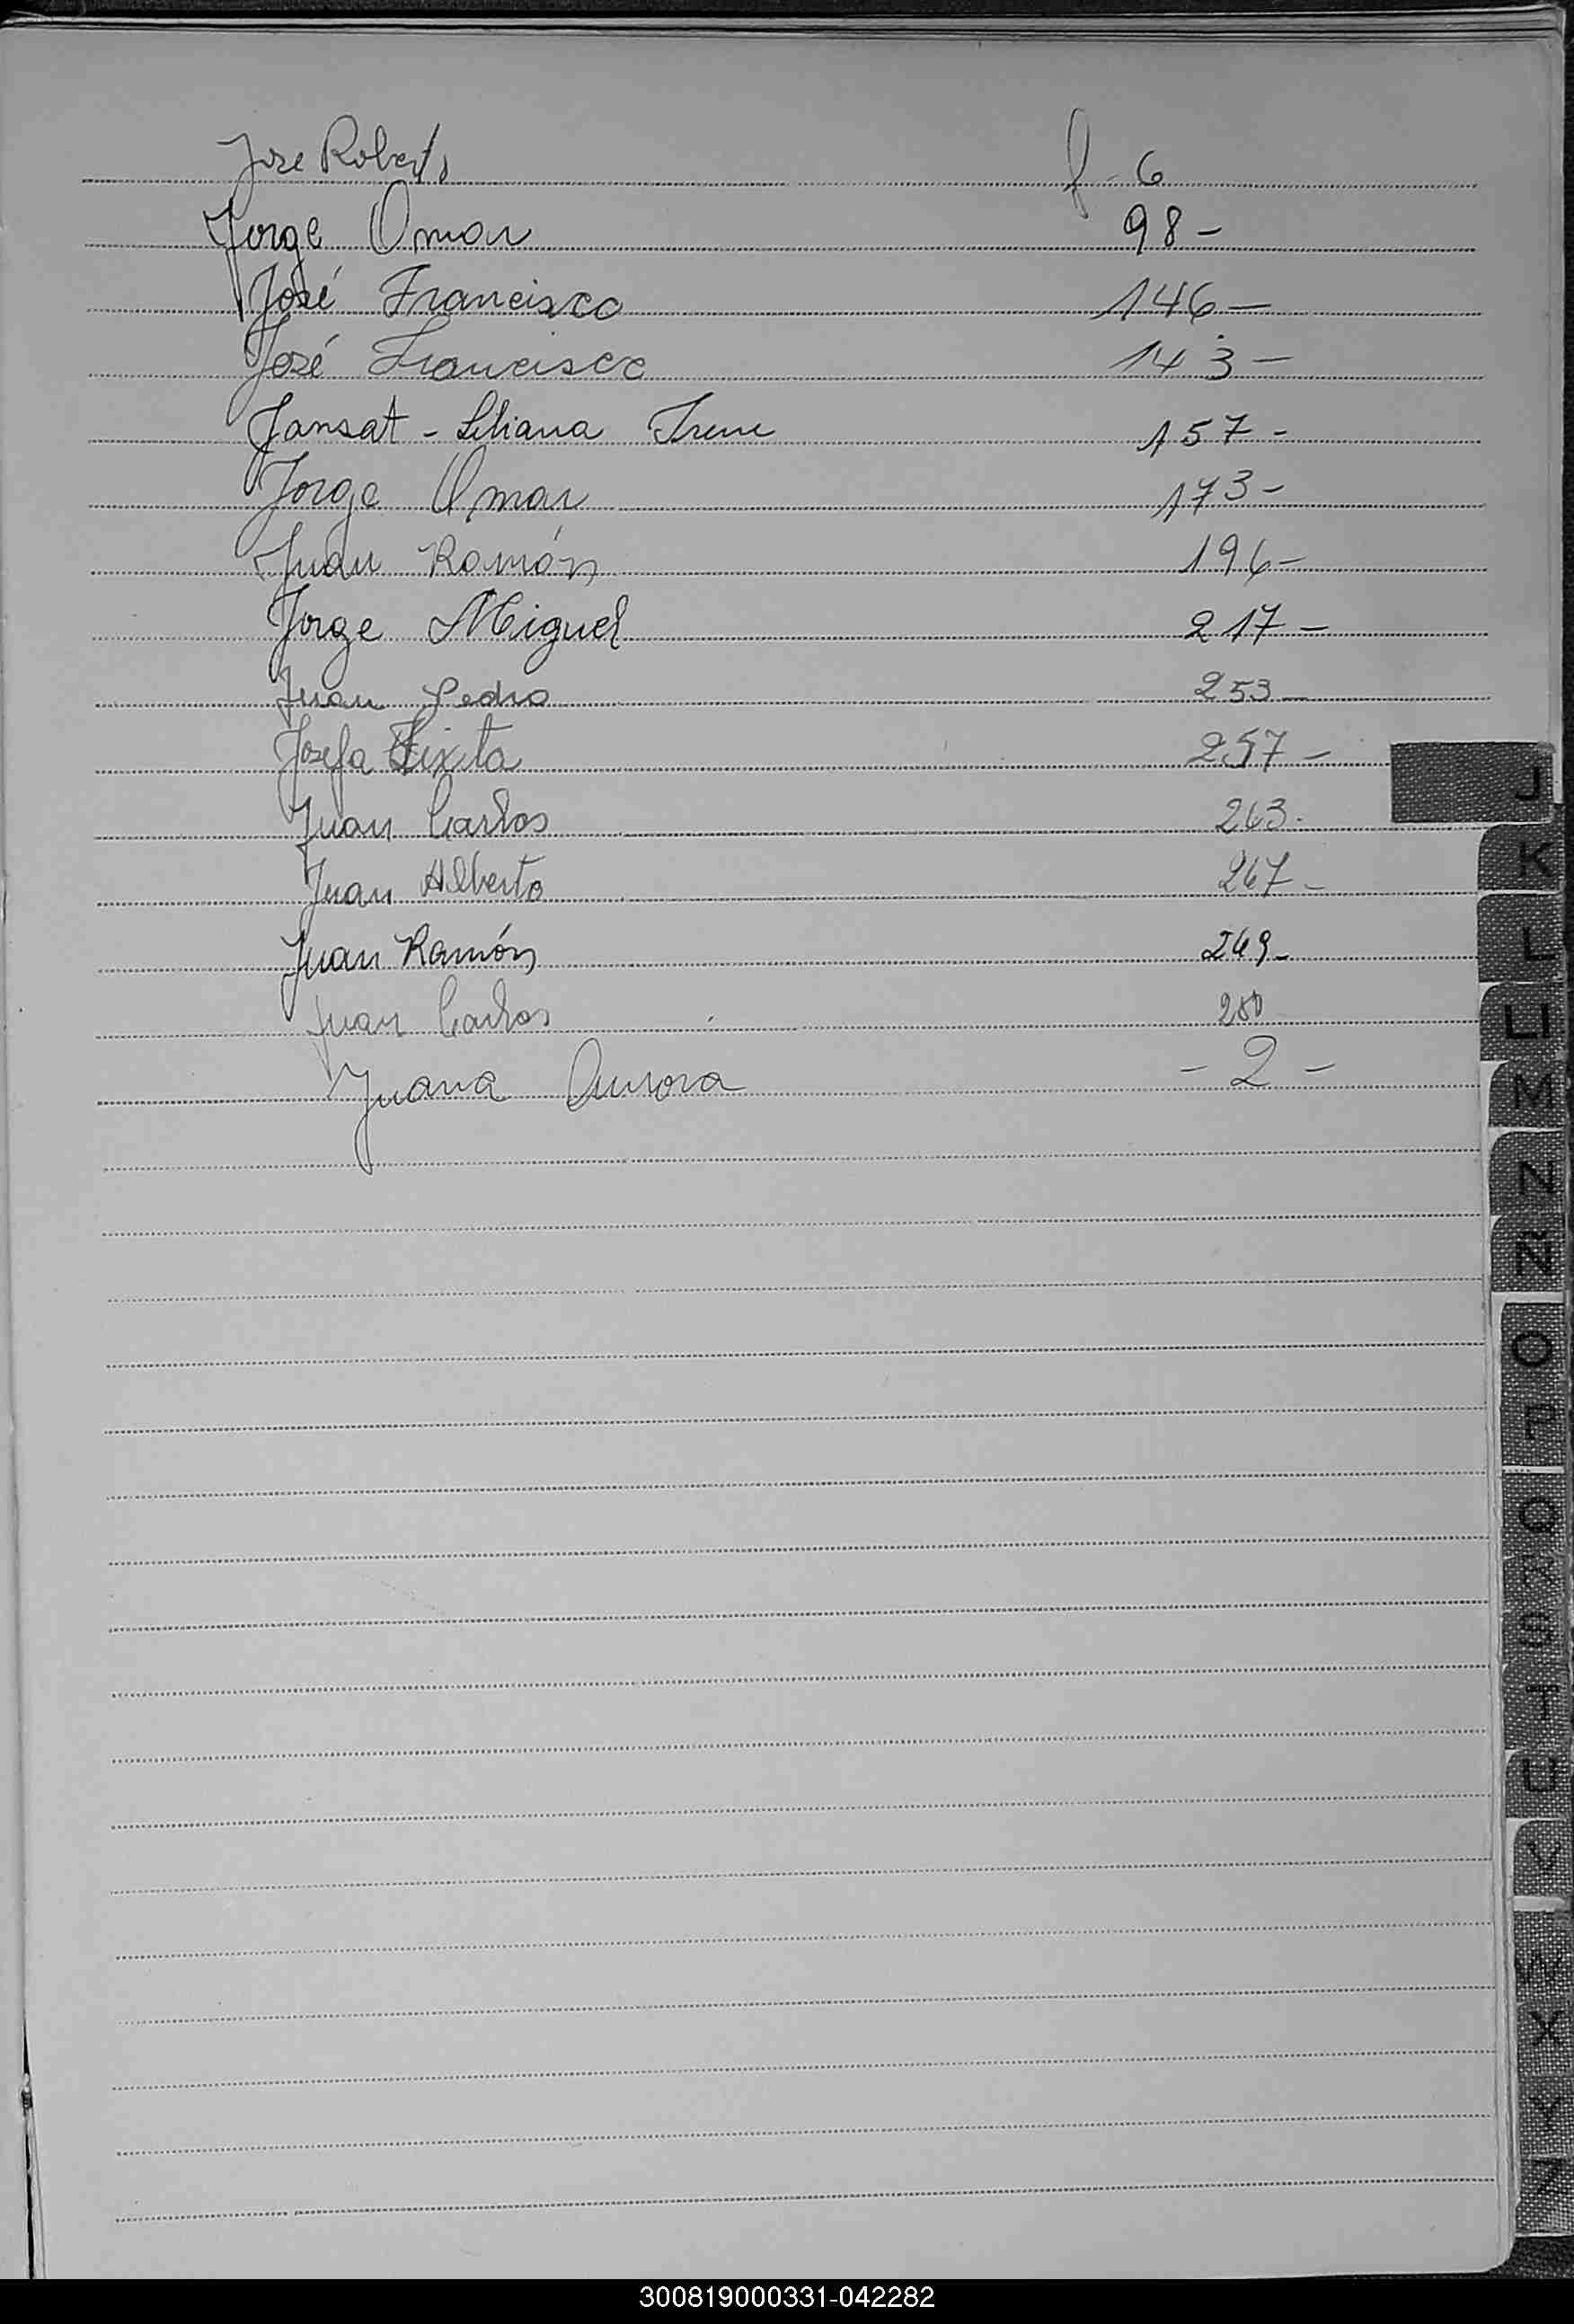 Jose Roberto f - 6
Jorge Omar 98 -
José Francisco 146 -
José Francisco 143 -
Jansat - Liliana Irene 157 -
Jorge Omar 173 -
Juan Ramón 196 -
Jorge Miguel 217 -
Juan Pedro 253 -
Josefa Sixta 257 -
Juan Carlos 263 -
Juan Alberto 267 -
Juan Ramón 269 -
Juan Carlos 280
Juana Aurora - 2 -
J
K
L
Ll
M
N
Ñ
O
P
Q
R
S
T
U
V
W
X
Y
Z
300819000331-042282